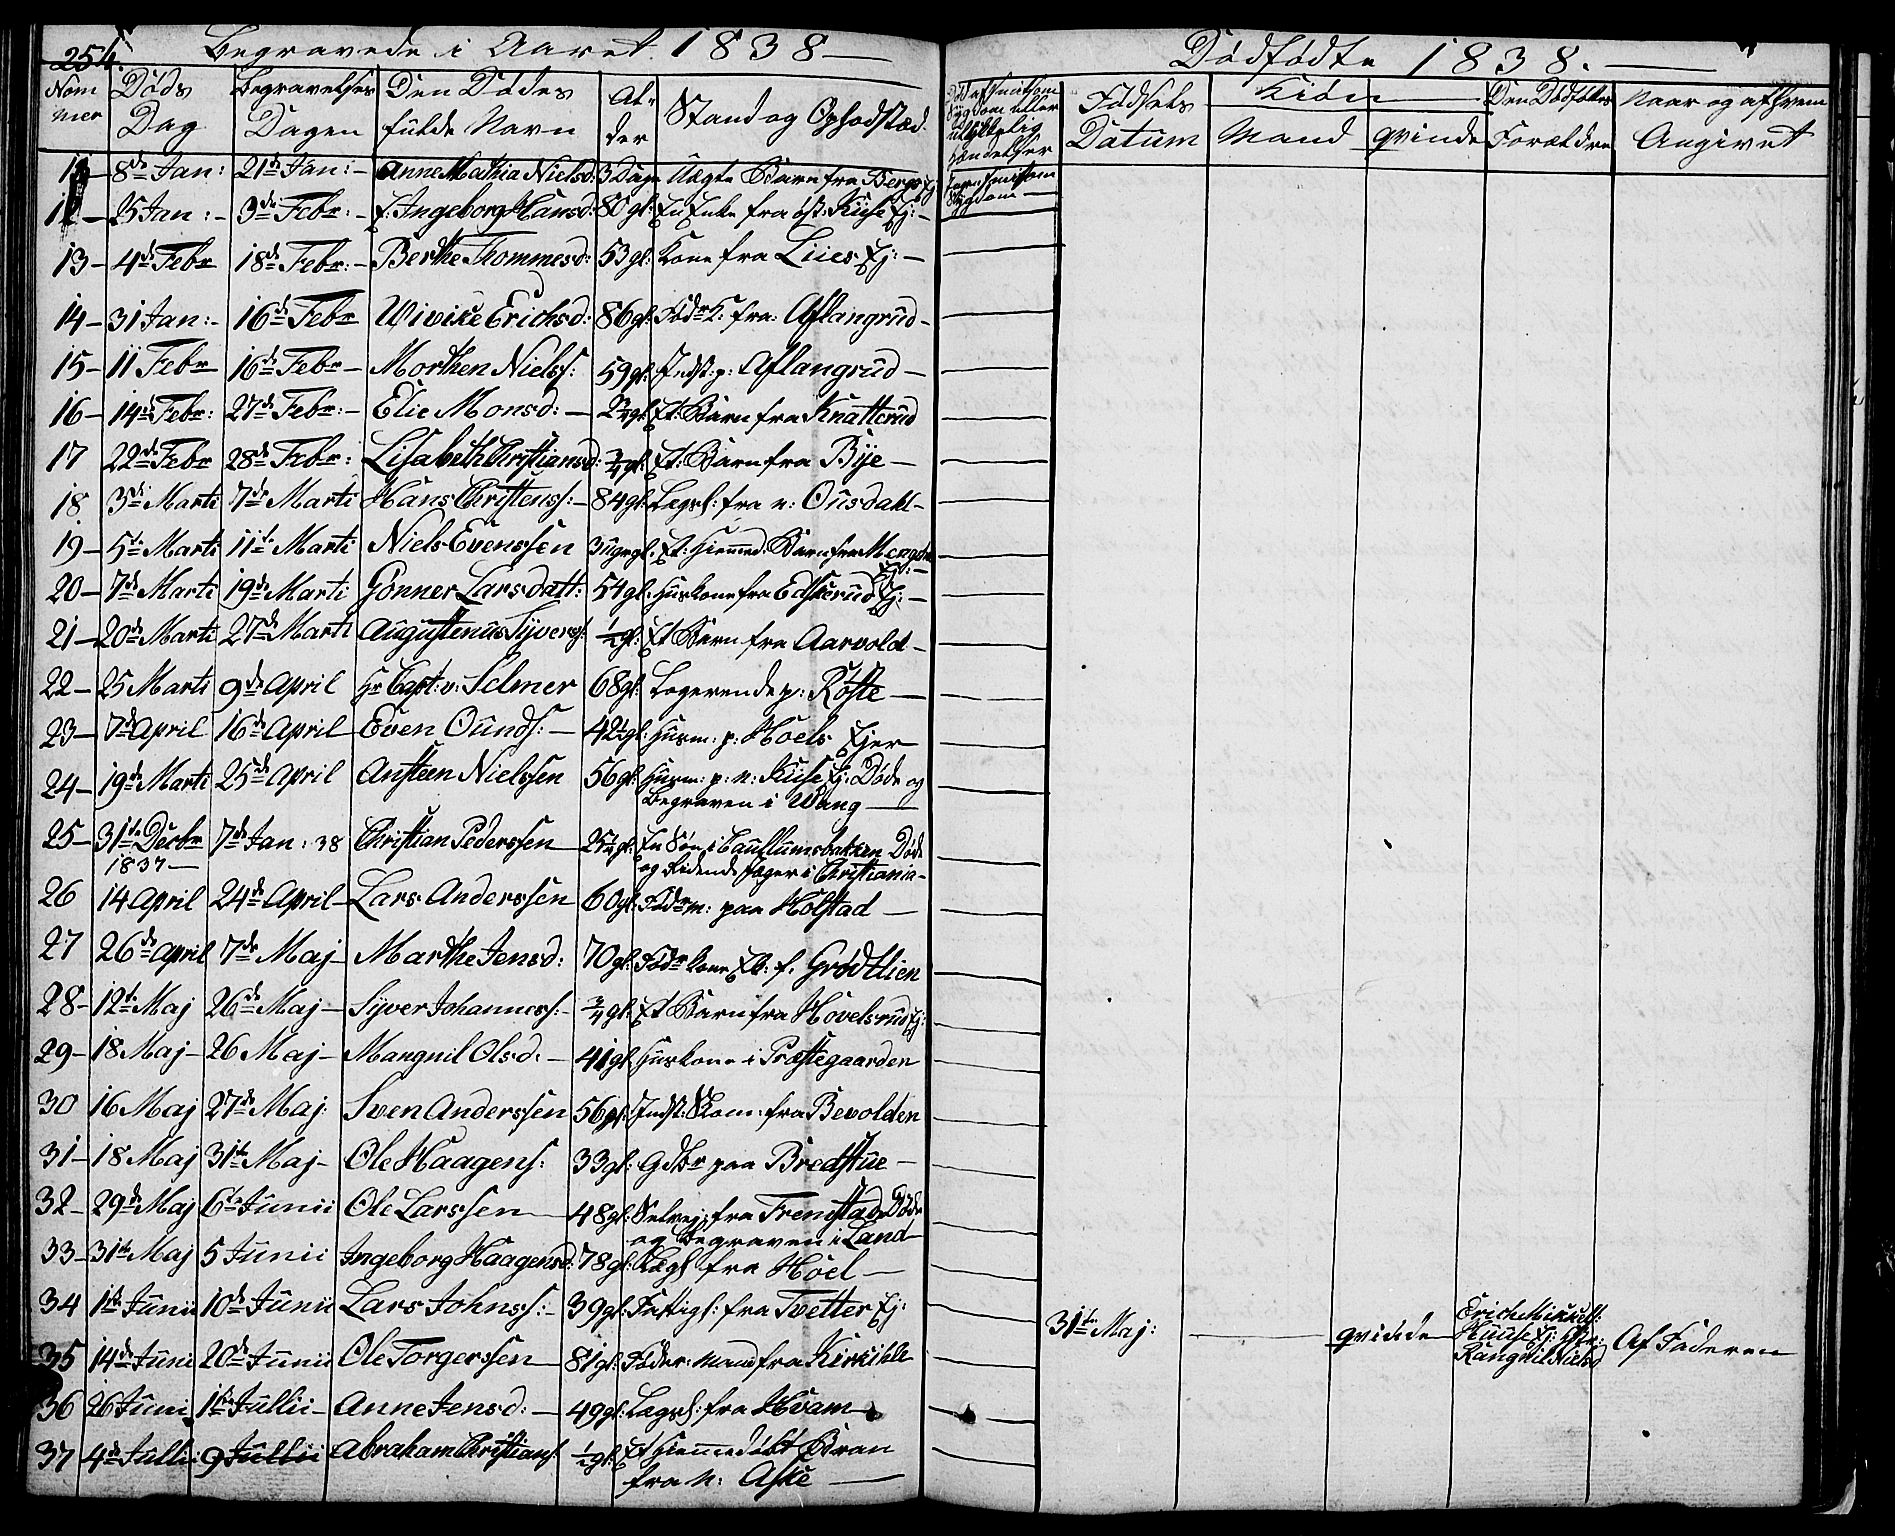 254.
Begravede i Aaret 1838 —
Nom
mer
Døds
Dag
Begravelses
Dagen
Den Dødes
fulde Navn
Al-
der
Stand og Opholdstæd.
8de Jan: 21de Jan: – Anne Mathia Nielsd: 3 Dage Uægte Barn fra Bergs Ej
12 – 25 Jan: – 3de Febr: – f: Ingeborg Hansd: 80 gl: En Enke fra øst: Kiise Ej: –
13 – 4de Febr 18de Febr: – Berthe Thommesd: 53 gl: Kone fra Liies Ej: –
14 – 31 Jan: – 16de Febr Wivike Erichsd: 86 gl: Födr K: fra: Aflangrud –
15 – 11 Febr 16de Febr – Morthen Nielss: 59 gl: Indst: p: Aflangrud –
16 – 14de Febr: 27de Febr: – Elie Monsd: – gl: Et Barn fra Knatterud
17 22de Febr 28de Febr: Lisabeth Christiansd: 3/4 gl: Et: Barn fra Bye –
18 3de Marti 7de Marti Hans Christenss: – 84 gl: Lægsl: fra n: Ousdahl –
19 – 5te Marti 11te Marti Niels Evenssen 3 ugr gl. Et: Hiemmed. Barn fra
Ej: –
20 – 7de Marti 19de Marti Gonner Larsdatt: 54 gl: Huskone fra Edskerud Ej: –
21 – 20de Marti 27de Marti Augustenus Syverss: 1/2 gl: Et Barn fra Aarvold –
22 – 25 Marti 9de April Hr Capt: v: Selmer 68 gl: Logerende p: Røste –
23 – 7de April 16de April Even Ounds: – 42 1/2 gl: Husm: p: Hoels Ejer
24 – 19de Marti 25de April Ansteen Nielssen 56 gl: Husm: p: n: Kiise Ej: Døde og
Begraven i Wang –
25 – 31te Decbr 7de Jan: 38 Christian Pederssen 25 1/2 gl: En Søn i Caullumsbakken Døde
1837 – og Ridende Jæger i Christiania –
26 14 April 24de April – Lars Anderssen 60 gl: Födr m: paa Holstad –
27 26de April 7de Maj – Marthe Jensd: 70 gl: Födr kone f. Grødtlien
28 – 12te Maj 26de Maj – Syver Johanness: – 3/4 gl: Et Barn fra Hovelsrud Ej:
29 – 18 Maj – 26 Maj – Mangnil Olsd: – 41 gl: Huskone i Præstegaarden
30 16 Maj 27de Maj: Sven Anderssen 56 gl: Indst: fra Bevolden
31 – 18 Maj 31te Maj – Ole Haagens: 33 gl: Gdbr paa Bredstue –
32 – 29de Maj 6te Junii Ole Larssen 48 gl: Selvej: fra Fremstad Døde
og Begraven i Land
33 – 31te Maj 5 Junii Ingeborg Haagensd: 78 gl: Lægsl fra Hoel –
34 1te Junii 10de Junii Lars Johnss: – 39 gl: Fattigl: fra Tvetter Ej:
35 14de Juni 20de Junii Ole Torgerssen 81 gl: Föder: mand fra Kirkibll
36 26 Juni 1te Jullii – Anne Jensd: – 49 gl: Lægsl: fra Hvam
37 4de Jullii 9 Jullii Abraham Christians: 1/2 gl: Et Hiemmedøbt Bran
fra N: Aske –
Dödfödte 1838. –
Død af Smitsom
Sygdom eller
ulykkelig
hændelser
Födsels
Datum
Kiön
Mand qvinde
Den Dødfødtes
Forældre
Naar og af hvem
Angivet
31te Maj: – qvinde
Erich Mikkels:
Huuse Ej:
Rangnil Nielsd
Af Faderen